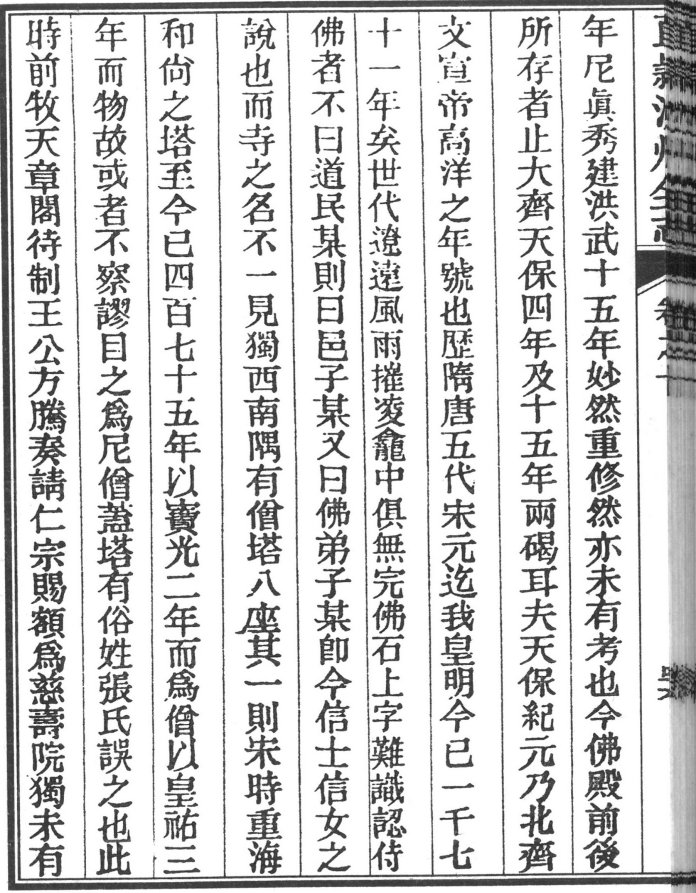 州全志 卷之
年尼眞秀建洪武十五年妙然重修然亦未有考也今佛殿前後
所存者止大齊天保四年及十五年兩碣耳夫天保紀元乃北齊
文宣帝高洋之年號也歷隋唐五代宋元迄我皇明今已一千七
十一年矣世代遼遠風雨摧凌龕中俱無完佛石上字難識認侍
佛者不曰道民某則曰邑子某又曰佛弟子某卽今信士信女之
說也而寺之名不一見獨西南隅有僧塔八座其一則宋時重海
和尙之塔至今已四百七十五年以寶光二年而爲僧以皇祐三
年而物故或者不察謬目之爲尼僧蓋塔有俗姓張氏誤之也此
時前牧天章閣待制王公方騰奏請仁宗賜額爲慈壽院獨未有